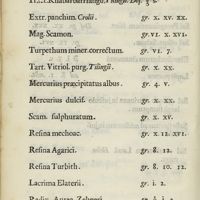 Extr. panchim. Crolii. gr. x. xv. xx.
Mag. Scamon. gr. vi. x. xvi.
Turpethum miner. correctum. gr. vi. 7.
Tart. Vitriol. purg. Tilingii. gr. x. xx.
Mercurius præcipitatus albus. gr. 4. v.
Mercurius dulcif. gr. x. xx.
Scam. sulphuratum. gr. x. xv.
Resina mechoac. gr. x. 12. xvi.
Resina Agarici. gr. 8. 12.
Resina Turbith. gr. 8. 10. 12.
Lacrima Elaterii. gr. i. 2.